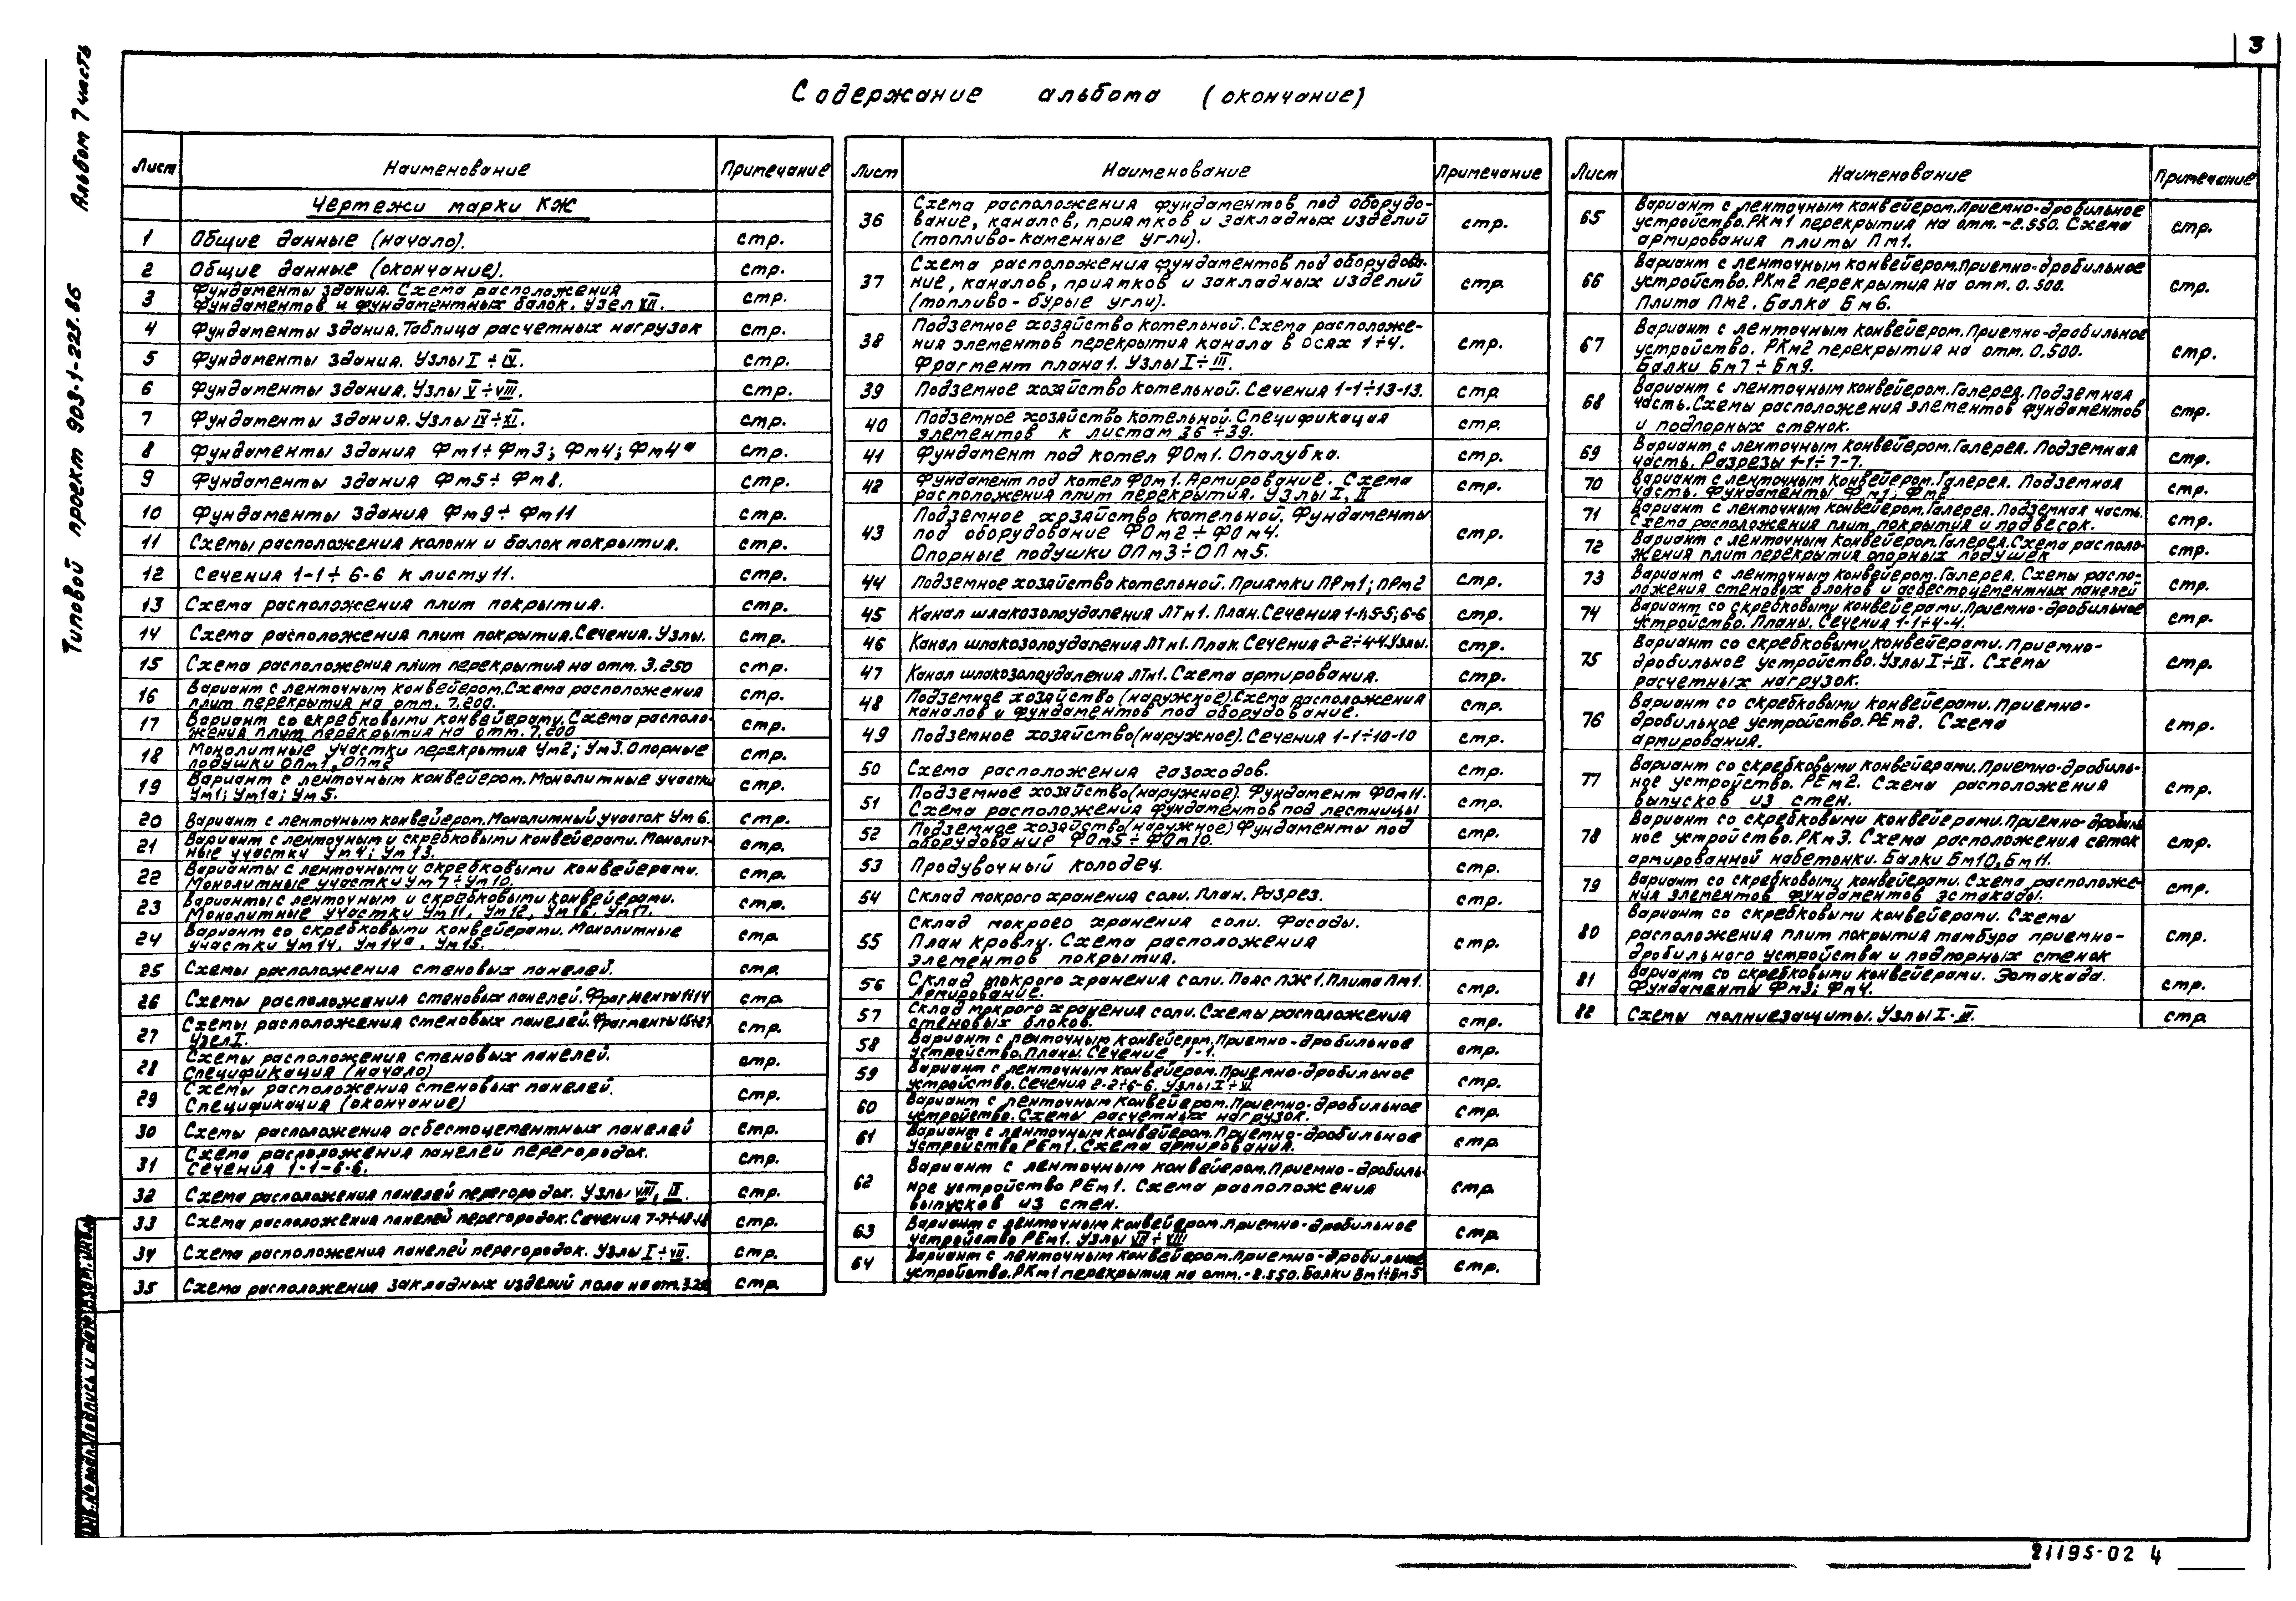 3
Альбом 7 часть
Типовой проект 903-1-223.86
Содержание альбома (окончание)
Лист Наименование Примечание
Чертежи марки КЖ
1 Общие данные (начало). стр.
2 Общие данные (окончание). стр.
3 Фундаменты здания. Схема расположения
фундаментов и фундаментных балок. Узел XII. стр.
4 Фундаменты здания. Таблица расчетных нагрузок стр.
5 Фундаменты здания. Узлы I÷IV. стр.
6 Фундаменты здания. Узлы V÷VIII. стр.
7 Фундаменты здания. Узлы IV÷XI. стр.
8 Фундаменты здания Фм1÷Фм3; Фм4; Фм4а стр.
9 Фундаменты здания Фм5÷Фм8. стр.
10 Фундаменты здания Фм9÷Фм11 стр.
11 Схемы расположения колонн и балок покрытия. стр.
12 Сечения 1-1÷6-6 к листу 11. стр.
13 Схема расположения плит покрытия. стр.
14 Схема расположения плит покрытия. Сечения. Узлы. стр.
15 Схема расположения плит перекрытия на отм. 3.250 стр.
16 Вариант с ленточным конвейером. Схема расположения
плит перекрытия на отм. 7.200. стр.
17 Вариант со скребковыми конвейерами. Схема располо-
жения плит перекрытия на отм. 7.200 стр.
18 Монолитные участки перекрытия Ум2; Ум3. Опорные
подушки ОПм1, ОПм2 стр.
19 Вариант с ленточным конвейером. Монолитные участки
Ум1; Ум1а; Ум5. стр.
20 Вариант с ленточным конвейером. Монолитный участок Ум6. стр.
21 Вариант с ленточным и скребковыми конвейерами. Монолит-
ные участки Ум4; Ум13. стр.
22 Варианты с ленточным и скребковыми конвейерами.
Монолитные участки Ум7÷Ум10. стр.
23 Варианты с ленточным и скребковыми конвейерами.
Монолитные участки Ум11, Ум12, Ум16, Ум17. стр.
24 Вариант со скребковыми конвейерами. Монолитные
участки Ум14, Ум14а, Ум15. стр.
25 Схемы расположения стеновых панелей. стр.
26 Схемы расположения стеновых панелей. Фрагменты 1÷14 стр.
27 Схемы расположения стеновых панелей. Фрагменты 15÷27
Узел I. стр.
28 Схемы расположения стеновых панелей.
Спецификация (начало) стр.
29 Схемы расположения стеновых панелей.
Спецификация (окончание) стр.
30 Схемы расположения асбестоцементных панелей стр.
31 Схема расположения панелей перегородок.
Сечения 1-1-6-6. стр.
32 Схема расположения панелей перегородок. Узлы VIII, IX. стр.
33 Схема расположения панелей перегородок. Сечения 7-7÷18-18 стр.
34 Схема расположения панелей перегородок. Узлы I÷VII. стр.
35 Схема расположения закладных изделий пола на отм. стр.
Лист Наименование Примечание
36 Схема расположения фундаментов под оборудо-
вание, каналов, приямков и закладных изделий
(топливо-каменные угли). стр.
37 Схема расположения фундаментов под оборудова-
ние, каналов, приямков и закладных изделий
(топливо-бурые угли). стр.
38 Подземное хозяйство котельной. Схема расположе-
ния элементов перекрытия канала в осях 1÷4.
Фрагмент плана 1. Узлы I÷III. стр.
39 Подземное хозяйство котельной. Сечения 1-1÷13-13. стр
40 Подземное хозяйство котельной. Спецификация
элементов к листам 36÷39. стр.
41 Фундамент под котел ФОм1. Опалубка. стр.
42 Фундамент под котел ФОм1. Армирование. Схема
расположения плит перекрытия. Узлы I, II стр.
43 Подземное хозяйство котельной. Фундаменты
под оборудование ФОм2÷ФОм4.
Опорные подушки ОПм3÷ОПм5. стр.
44 Подземное хозяйство котельной. Приямки ПРм1; ПРм2 стр.
45 Канал шлакозолоудаления ЛТм1. План. Сечения 1-1; 5-5; 6-6 стр.
46 Канал шлакозолоудаления ЛТм1. План. Сечения 2-2÷4-4. Узлы. стр.
47 Канал шлакозолоудаления ЛТм1. Схема армирования. стр.
48 Подземное хозяйство (наружное). Схема расположения
каналов и фундаментов под оборудование. стр.
49 Подземное хозяйство (наружное). Сечения 1-1÷10-10 стр.
50 Схема расположения газоходов. стр.
51 Подземное хозяйство (наружное). Фундамент ФОм11.
Схема расположения фундаментов под лестницы стр.
52 Подземное хозяйство (наружное) Фундаменты под
оборудование ФОм5÷ФОм10. стр.
53 Продувочный колодец. стр.
54 Склад мокрого хранения соли. План. Разрез. стр.
55 Склад мокрого хранения соли. Фасады.
План кровли. Схема расположения
элементов покрытия. стр.
56 Склад мокрого хранения соли. Пояс ПЖ1. Плита Пм1.
Армирование. стр.
57 Склад мокрого хранения соли. Схемы расположения
стеновых блоков. стр.
58 Вариант с ленточным конвейером. Приемно-дробильное
устройство. Планы. Сечение 1-1. стр.
59 Вариант с ленточным конвейером. Приемно-дробильное
устройство. Сечения 2-2÷6-6. Узлы I÷VI стр.
60 Вариант с ленточным конвейером. Приемно-дробильное
устройство. Схемы расчетных нагрузок. стр.
61 Вариант с ленточным конвейером. Приемно-дробильное
устройство РЕм1. Схема армирования. стр
62 Вариант с ленточным конвейером. Приемно-дробиль-
ное устройство РЕм1. Схема расположения
выпусков из стен. стр
63 Вариант с ленточным конвейером. Приемно-дробильное
устройство РЕм1. Узлы VII÷VIII стр
64 Вариант с ленточным конвейером. Приемно-дробильное
устройство. РКм1 перекрытия на отм. -2.550. Балки Бм1÷Бм5 стр.
Лист Наименование Примечание
65 Вариант с ленточным конвейером. Приемно-дробильное
устройство. РКм1 перекрытия на отм. -2.550. Схема
армирования плиты Пм1. стр.
66 Вариант с ленточным конвейером. Приемно-дробильное
устройство. РКм2 перекрытия на отм. 0.500.
Плита Пм2. Балка Бм6. стр.
67 Вариант с ленточным конвейером. Приемно-дробильное
устройство. РКм2 перекрытия на отм. 0.500.
Балки Бм7÷Бм9. стр.
68 Вариант с ленточным конвейером. Галерея. Подземная
часть. Схемы расположения элементов фундаментов
и подпорных стенок. стр.
69 Вариант с ленточным конвейером. Галерея. Подземная
часть. Разрезы 1-1÷7-7. стр.
70 Вариант с ленточным конвейером. Галерея. Подземная
часть. Фундаменты Фм1; Фм2 стр.
71 Вариант с ленточным конвейером. Галерея. Подземная часть.
Схема расположения плит покрытия и подвесок. стр.
72 Вариант с ленточным конвейером. Галерея. Схема располо-
жения плит перекрытия опорных подушек стр.
73 Вариант с ленточным конвейером. Галерея. Схемы распо-
ложения стеновых блоков и асбестоцементных панелей стр.
74 Вариант со скребковыми конвейерами. Приемно-дробильное
устройство. Планы. Сечения 1-1÷4-4. стр.
75 Вариант со скребковыми конвейерами. Приемно-
дробильное устройство. Узлы I÷IV. Схемы
расчетных нагрузок. стр.
76 Вариант со скребковыми конвейерами. Приемно-
дробильное устройство. РЕм2. Схема
армирования. стр.
77 Вариант со скребковыми конвейерами. Приемно-дробиль-
ное устройство. РЕм2. Схема расположения
выпусков из стен. стр.
78 Вариант со скребковыми конвейерами. Приемно-дробиль-
ное устройство. РКм3. Схема расположения сеток
армированной набетонки. Балки Бм10, Бм11. стр.
79 Вариант со скребковыми конвейерами. Схема расположе-
ния элементов фундаментов эстакады. стр.
80 Вариант со скребковыми конвейерами. Схемы
расположения плит покрытия тамбура приемно-
дробильного устройства и подпорных стенок стр.
81 Вариант со скребковыми конвейерами. Эстакада.
Фундаменты Фм3; Фм4. стр.
82 Схемы молниезащиты. Узлы I-III. стр
21195-02 4